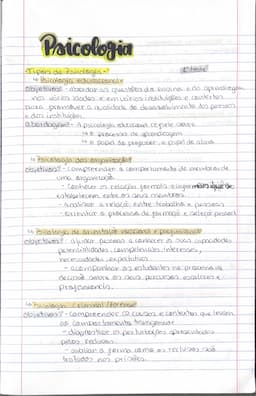 Psicologia
Tipos de Psicologia:
↳ Psicologia educacional
objetivos: abordar as questões do ensino e da aprendizagem
nas várias idades e em vários instituições e contextos
para promover a qualidade de desenvolvimento das pessoas
e das instituições
abordagem: A psicologia educacional reflete sobre
↳ o processo de aprendizagem
↳ o papel do professor e papel do aluno
↳ Psicologia das organizações
objetivos: - compreender o comportamento de membros de
uma organização
- conhecer as relações formais e informais que se
estabelecem entre os seus membros
- analisar a relação entre trabalho e pessoas
- orientar o processo de formação e seleção pessoal
↳ Psicologia de orientação vocacional e profissional
objetivos: - ajudar pessoas a conhecer as suas capacidades
potencialidades, competências, interesses,
necessidades, expectativas
- acompanhar os estudantes no processo de
decisão sobre os seus percursos escolares e
profissionais.
↳ Psicologia Criminal / forense
objetivos: - compreender as causas e contextos que levam
ao comportamento transgressor
- diagnosticar as perturbações apresentadas
pelos reclusos
- avaliar a forma como os reclusos são
tratados nas prisões.